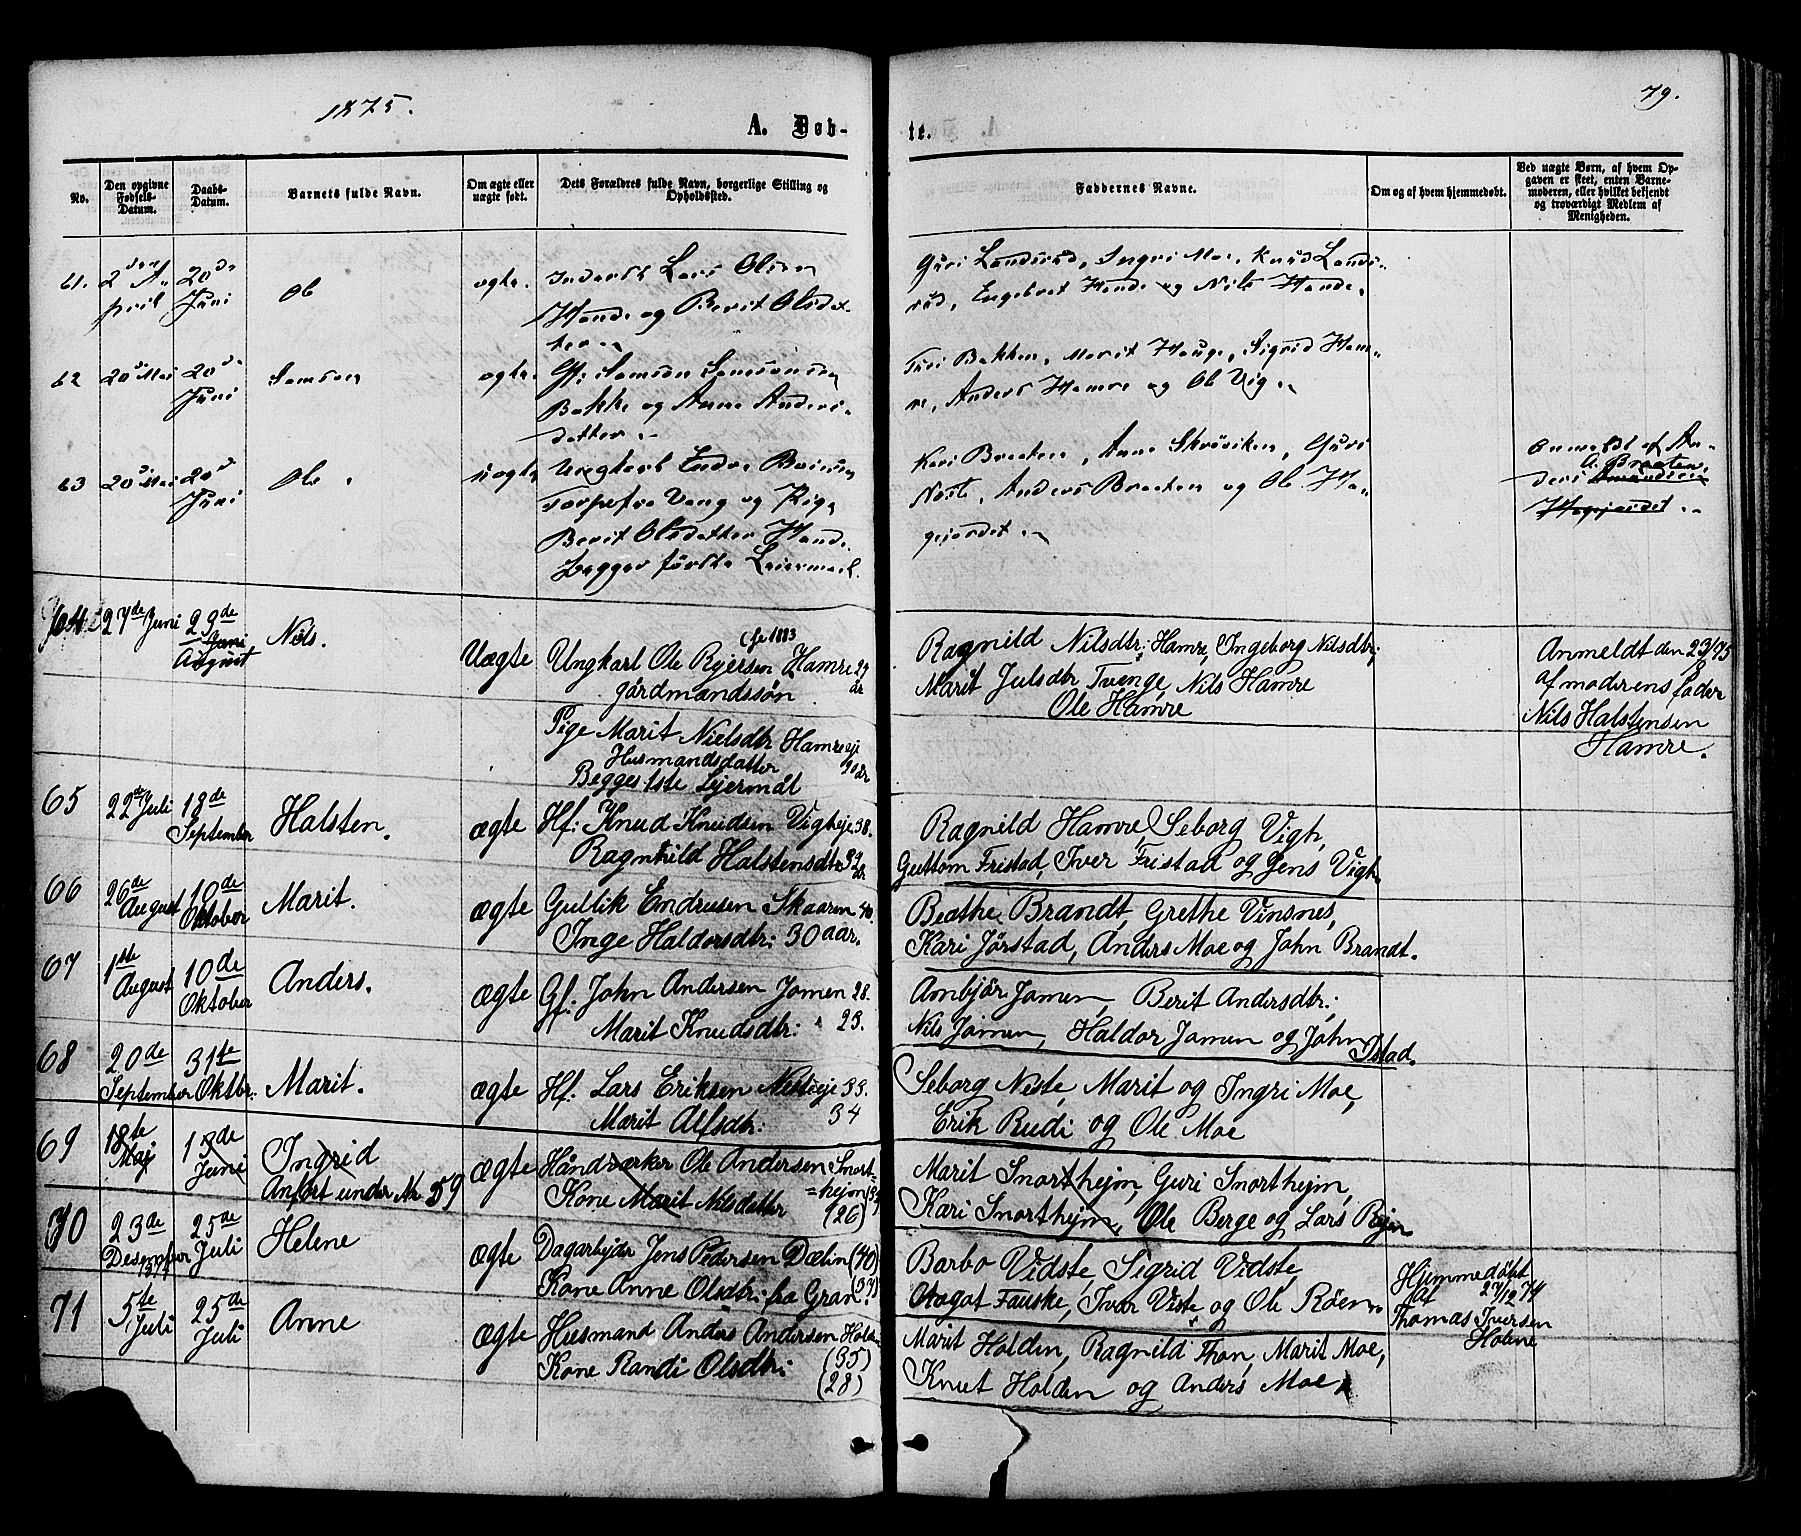 1875.
79.
A. Døb-
te.
No.
Den opgivne Fødsels-Datum.
Daabs-Datum.
Barnets fulde Navn.
Om ægte eller uægte født.
Dets Forældres fulde Navn, borgerlige Stilling og Opholdssted.
Faddernes Navne.
Om og af hvem hjemmedøbt.
Ved uægte Børn, af hvem Op-
gaven er skeet, enten Barne-
moderen, eller hvilket bekjendt
og troværdigt Medlem af
Menigheden.
61. 2den A- 20de
pril Juni
Ole
ægte.
Lars Olsen
Hande og Berit Olsdat-
ter.
Guri Landsrud, Ingri Moe, Knud Lands-
rud, Engebret Hande og Nils Hande.
62 20de Mai 20de
Juni
Samson
ægte.
Gf: Samson Samsonsen
Bakke og Anne Anders-
datter.
Turi Bakken, Marit Hauge, Sigrid Ham-
re, Anders Hamre og Ole Vig.
63 20de Mai 20de
Juni
Ole
uægte
Ungkarl Endre
Vang og Pige
Berit Olsdatter Hande.
Begges første Leiermaal.
Kari Braaten, Anne Skrøviken, Guri
Neste, Anders Braaten og Ole Ha-
gejordet.
Anmeldt af An-
A. Braaten.
ders
Hagejordet.
64 27de Juni 29de
Juni
August
Nils.
Uægte
(fø 1883
Ungkarl Ole Ryersen Hamre 29
år
gårdmandssøn
Pige Marit Nielsdtr Hamreeje
Husmandsdatter 20 år
Begges 1ste Lejermål
Ragnild Nilsdtr: Hamre, Ingeborg Nilsdtr;
Marit Julsdtr Tvenge, Nils Hamre
Ole Hamre
Anmeldt den 23/8 75
af moderens fader
Nils Halstensen
Hamre.
65 22de Juli 18de
September
Halsten.
ægte
Hf: Knud Knudsen Vigheje 38.
Ragnhild Halstensdtr 32
år
Ragnild Hamre, Seborg Vigh,
Guttom Fristad, Iver Fristad og Jens Vigh.
66 26de August 10de Oktober
Marit.
ægte
Gullik Endresen Skaaren 40.
Inge Haldorsdtr: 30 aar.
Beathe Brandt, Grethe Vinsnes,
Kari Jørstad, Anders Moe og John Brandt.
67 1ste August 10de Oktober
Anders.
ægte
Gf: John Andersen Jomen 28.
Marit Knudsdtr: 23.
Ambjør Jomen, Berit Andersdtr:
Nils Jomen, Haldor Jomen og John
Istad.
68 20de September 31te Oktbr:
Marit.
ægte
Hf: Lars Eriksen Nesteeje 33.
Marit Alfsdtr: 34
Seborg Neste, Marit og Ingri Moe,
Erik Rudi og Ole Moe
69 18te Maj 13de Juni
Ingrid
Anført under Nr. 59
ægte
Håndværker Ole Andersen Snort-
=hejm (34
Kone Marit Nilsdatter (26)
Marit Snorthejm, Guri Snorthejm,
Kari Snorthejm, Ole Berge og Lars Ryen
70 23de Desember 1874 25de Juli
Helene
ægte
Dagarbejdr Jens Pedersen Dælin (40)
Kone Anne Olsdtr: fra Gran (33)
Barbo Vidste, Sigrid Vidste,
Aagot Fauske, Iver Viste og Ole Røen.
Hjemmedøbt
27/12 74
af
Thomas Iversen
Holene
71 5te Juli 25de Juli
Anne
ægte
Husmand Anders Andersen Holden
(35)
Kone Randi Olsdtr: (28)
Marit Holden, Ragnild Thon, Marit Moe,
Knut Holden og Anders Moe